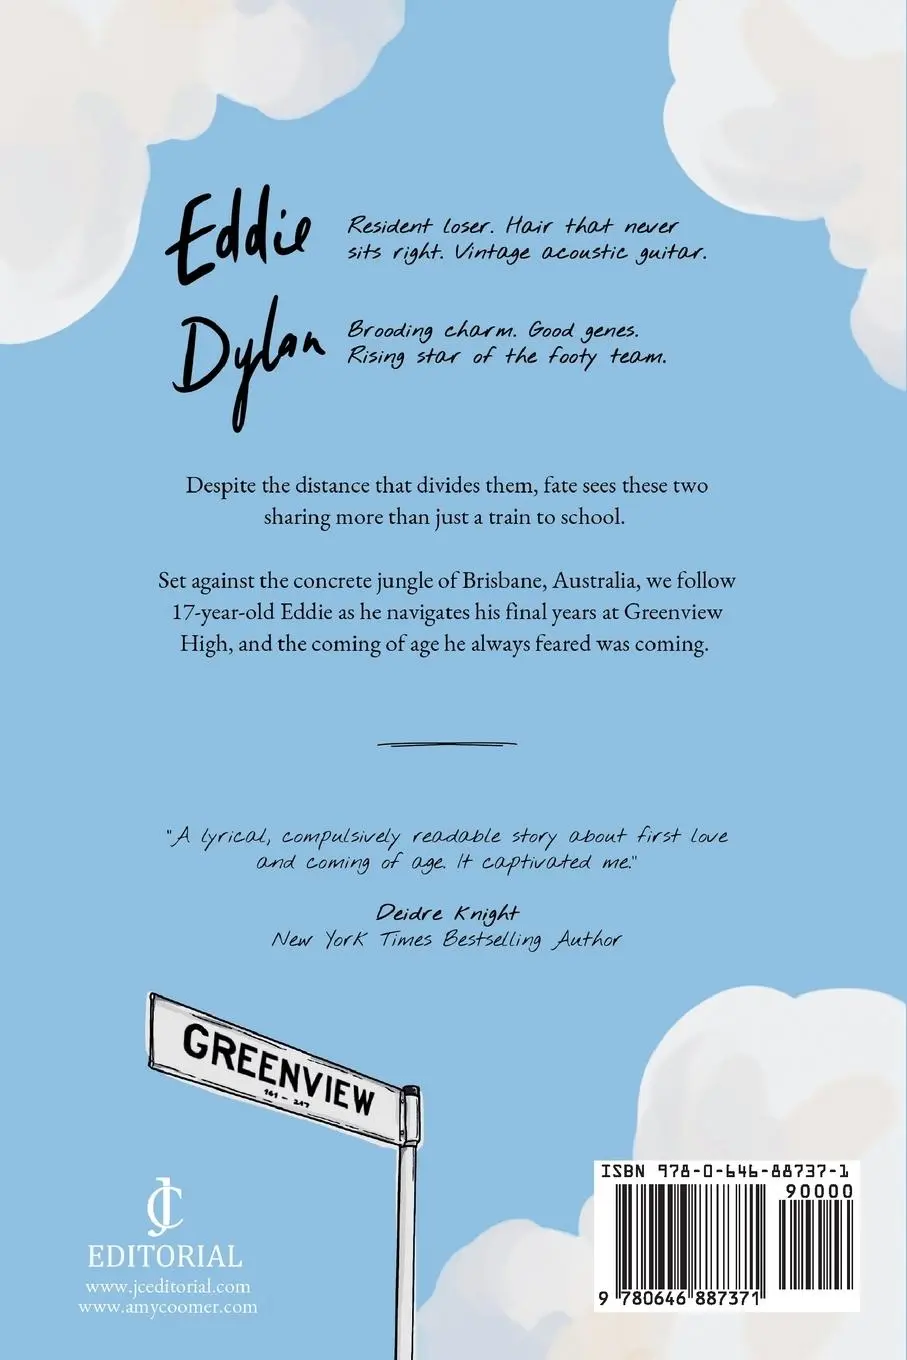 Eddie
Resident loser. Hair that never
sits right. Vintage acoustic guitar.
Dylan
Brooding charm. Good genes.
Rising star of the footy team.
Despite the distance that divides them, fate sees these two
sharing more than just a train to school.
Set against the concrete jungle of Brisbane, Australia, we follow
17-year-old Eddie as he navigates his final years at Greenview
High, and the coming of age he always feared was coming.
"A lyrical, compulsively readable story about first love
and coming of age. It captivated me."
Deidre Knight
New York Times Bestselling Author
GREENVIEW
161 - 247
JC
EDITORIAL
www.jceditorial.com
www.amycoomer.com
ISBN 978-0-646-88737-1
90000
9 780646 887371